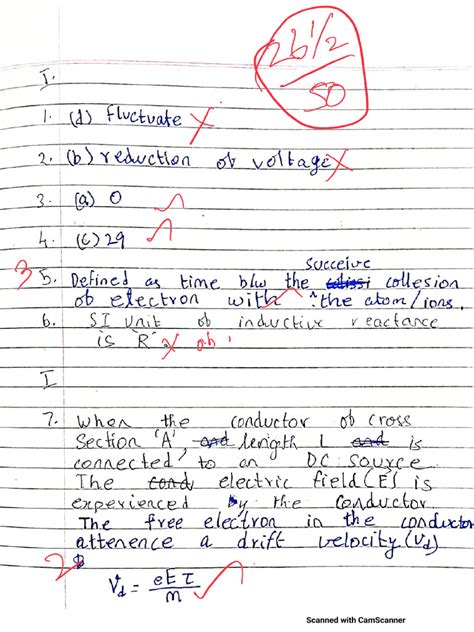 26 1/2
50
I.
1. (d) fluctuate
2. (b) reduction of voltage
3. (a) 0
4. (c) 29
succeive
3 5. Defined as time b/w the collesion
of electron with the atom/ions.
6. SI unit of inductive reactance
is 'R'
I
7. When the conductor of cross
Section 'A' and length l and is
connected to an DC source.
The cond electric field (E) is
experienced by the conductor
The free electron in the conductor
attenence a drift velocity (Vd)
2
Vd = eEτ
m
Scanned with CamScanner